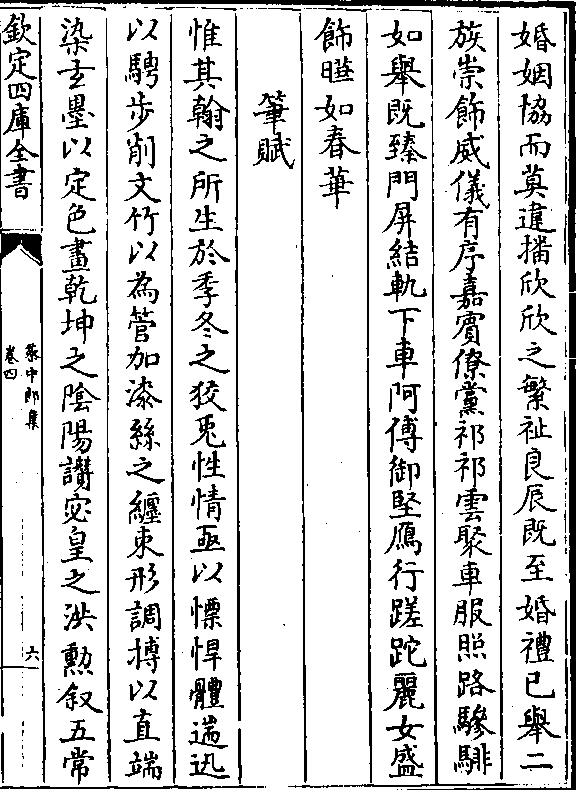 婚姻協而莫違播欣欣之繁祉良辰既至婚禮已舉二
族崇飾威儀有序嘉賔僚黨祁祁雲聚車服照路驂騑
如舉既臻門屏結軌下車阿傅御竪鴈行蹉跎麗女盛
飾曄如春華
筆賦
惟其翰之所生於季冬之狡兎性情亟以慓悍體遄迅
以騁步削文竹以為管加漆絲之纒束形調摶以直端
染𤣥墨以定色畫乾坤之陰陽讚宓皇之洪勲叙五常
欽定四庫全書
蔡中郎集
卷四
六